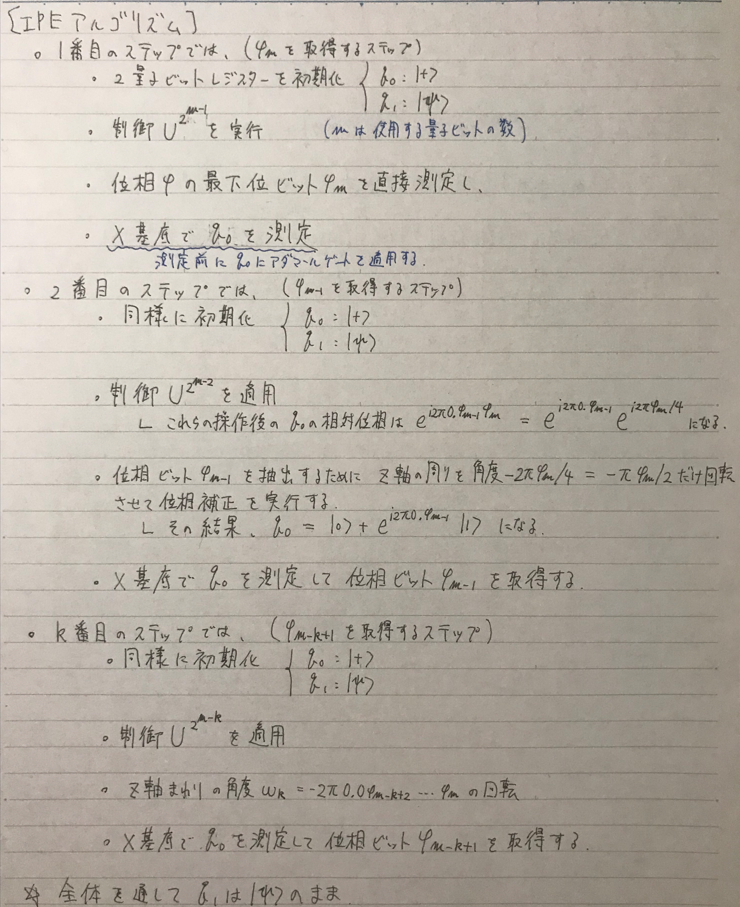 [IPEアルゴリズム]
。1番目のステップでは、(φmを取得するステップ)
・2量子ビットレジスターを初期化 { q0 : |+>
q1 : |ψ>
・制御 U^2^m-1 を実行 (mは使用する量子ビットの数)
・位相φの最下位ビットφmを直接測定し、
・X基底でq0を測定
測定前にq0にアダマールゲートを適用する.
。2番目のステップでは、(φm-1を取得するステップ)
・同様に初期化 { q0 : |+>
q1 : |ψ>
・制御 U^2^m-2 を適用
L これらの操作後のq0の相対位相は e^i2π0.φm-1φm = e^i2π0.φm-1 e^i2πφm/4 になる.
・位相ビットφm-1を抽出するために Z軸の周りを角度-2πφm/4 = -πφm/2だけ回転
させて位相補正を実行する.
L その結果、q0 = |0> + e^i2π0.φm-1 |1> になる.
・X基底でq0を測定して位相ビットφm-1を取得する.
。k番目のステップでは、(φm-k+1を取得するステップ)
・同様に初期化 { q0 : |+>
q1 : |ψ>
・制御 U^2^m-k を適用
・Z軸まわりの角度ωk = -2π0.0φm-k+2 … φm の回転
・X基底でq0を測定して位相ビットφm-k+1を取得する.
☆ 全体を通してq1は|ψ>のまま